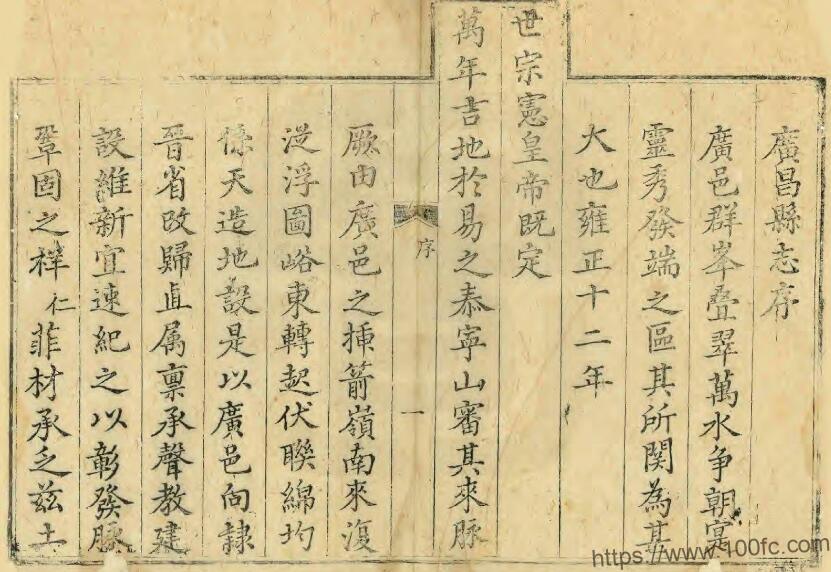 廣昌縣志序
廣邑群峯疊翠萬水争朝寔
靈秀發端之區其所関為甚
大也雍正十二年
世宗憲皇帝既定
萬年吉地於易之泰寧山審其來脉
序
一
厥由廣邑之揷箭嶺南來復
從浮圖峪東轉起伏聯綿均
係天造地設是以廣邑向隸
晉省改歸直属禀承聲教建
設維新宜速紀之以彰發脉
鞏固之祥仁菲材承乏兹土
https://www.100fc.com